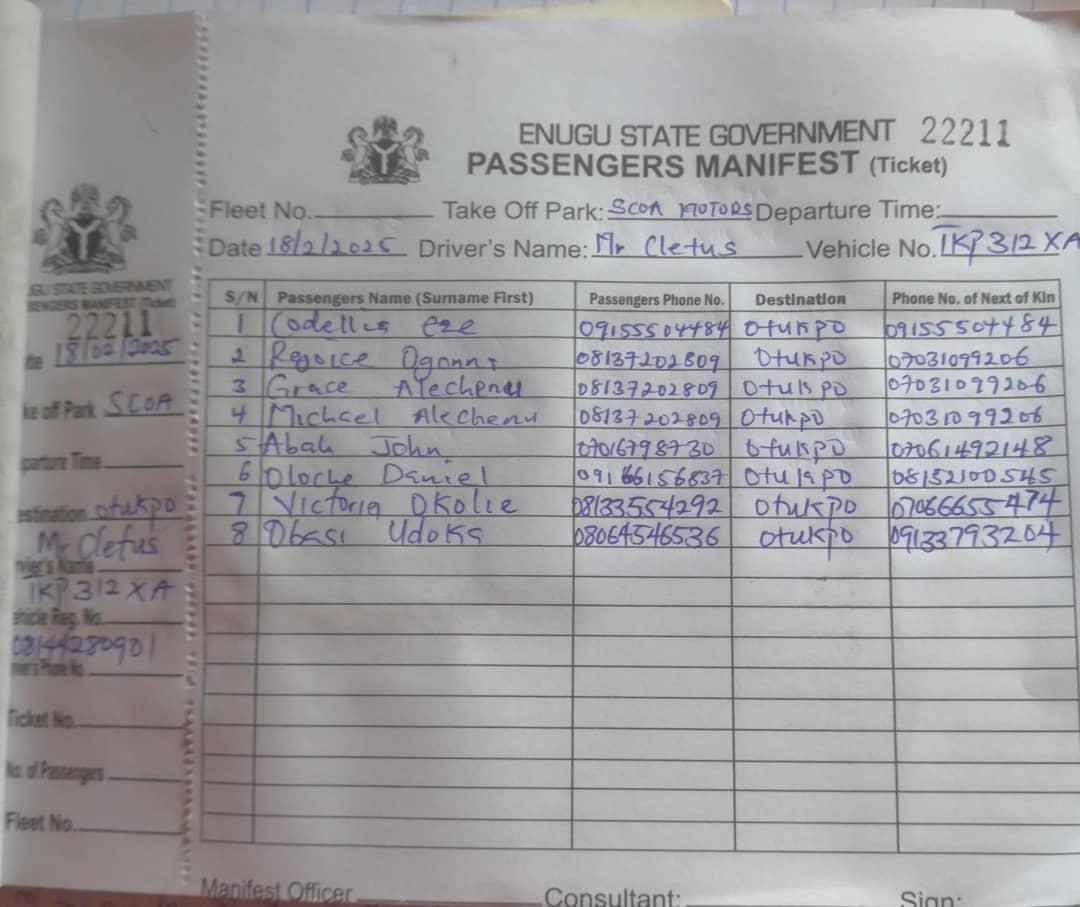 ENUGU STATE GOVERNMENT 22211
PASSENGERS MANIFEST (Ticket)
Fleet No. Take Off Park: SCOA MOTORS Departure Time:
Date 18/2/2025 Driver's Name: Mr Cletus Vehicle No. TKP 312 XA
S/N Passengers Name (Surname First) Passengers Phone No. Destination Phone No. of Next of Kin
1 Codellus eze 09155504484 Otukpo 09155504484
2 Rejoice 08137202809 Otukpo 07031099206
3 Grace Alechenu 08137202809 Otukpo 07031099206
4 Michael Alechenu 08137202809 Otukpo 07031099206
5 Abah John 07016798730 Otukpo 07061492148
6 Oloche Daniel 09166156837 Otukpo 08152100545
7 Victoria Okolie 08133554292 Otukpo 07066655474
8 Obasi Udoka 08064546536 Otukpo 09133793204
Manifest Officer Consultant: Sign:
UGU STATE GOVERNMENT
ENGERS MANIFEST (Ticket)
22211
te 18/02/2025
ke off Park SCOA
parture Time
estination Otukpo
Mr Cletus
river's Name
TKP 312 XA
ehicle Reg. No.
08144280901
iver's Phone No
Ticket No.
No. of Passengers
Fleet No.